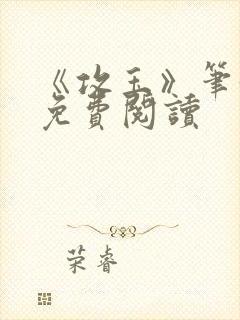 《攻玉》筆
免費閱讀
荣睿